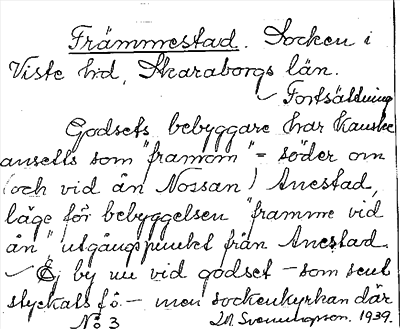 Främmestad. Socken i
Viste hd, Skaraborgs län.
Fortsättning
Godsets bebyggare har kanske
ansetts som "framom" - söder om
(och vid ån Nossan) Anestad,
läge för bebyggelsen "framme vid
ån" utgångspunkt från Anestad.
Ej by nu vid godset - som sent
styckats fö. - men sockenkyrkan där
No 3 Svenungson. 1939.